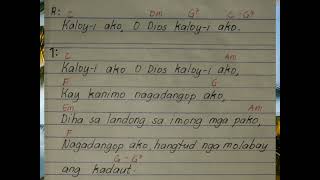 R: C Dm G⁷ C - G⁷
Kaloy-i ako, O Dios kaloy-i ako.
1: C Am
Kaloy-i ako O Dios kaloy-i ako,
F G
Kay kanimo nagadangop ako,
Em Am
Diha sa landong sa imong mga pako,
F
Nagadangop ako, hangtud nga molabay
G - G⁷
ang kadaut.